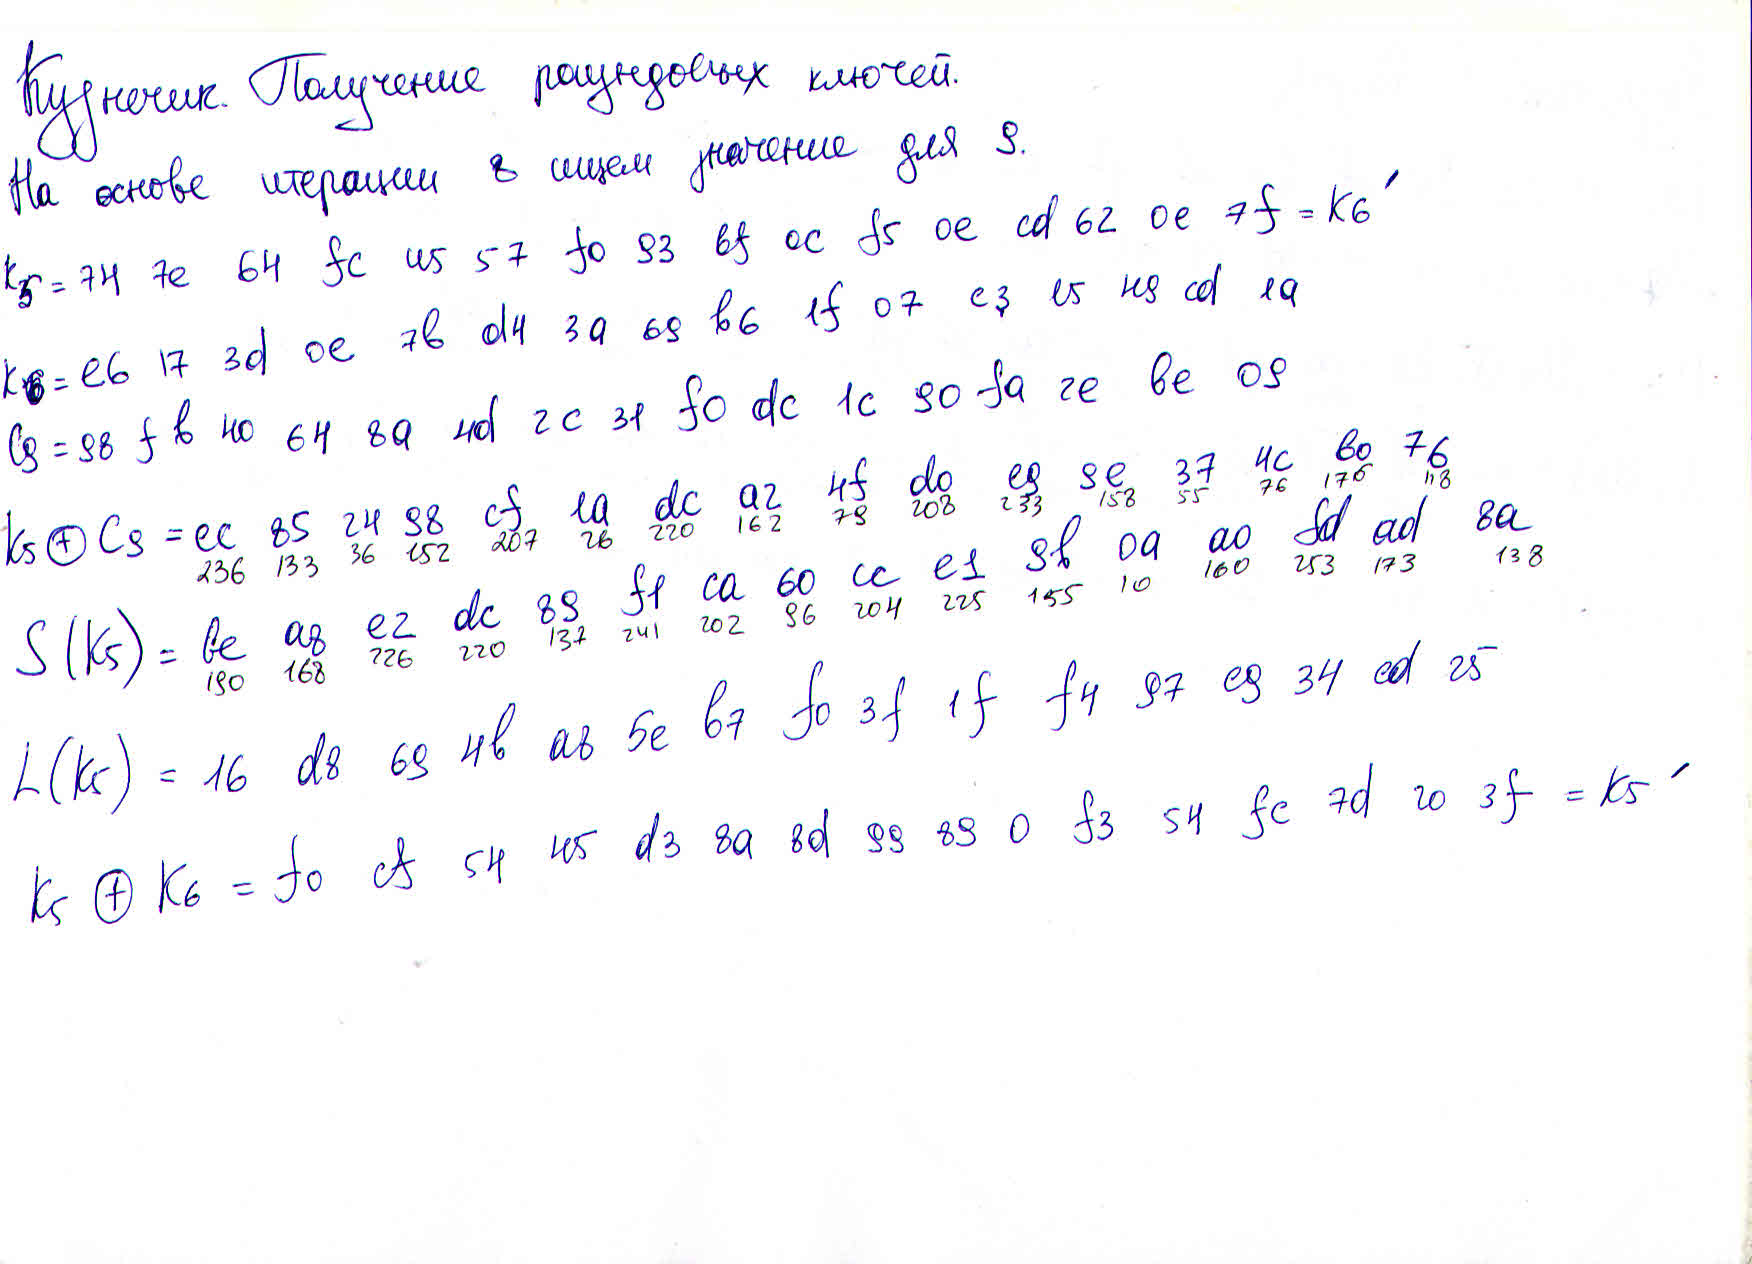 Кузнечик. Получение раундовых ключей.
На основе итерации 8 ищем значение для 9.
K5 = 74 7e 64 fc 45 57 f0 93 bf 0c f5 0e cd 62 0e 7f = K6'
K6 = e6 17 3d 0e 7b d4 3a 69 b6 1f 07 e3 15 49 cd 1a
C9 = 98 fb 40 64 8a 4d 2c 31 f0 dc 1c 90 fa 2e be 09
K5 ⊕ C9 = ec 85 24 98 cf 1a dc a2 4f d0 e9 9e 37 4c b0 76
236 133 36 152 207 26 220 162 79 208 233 158 55 76 176 118
S(K5) = be a8 e2 dc 89 f1 ca 60 cc e1 9b 0a a0 fd ad 8a
190 168 226 220 137 241 202 96 204 225 155 10 160 253 173 138
L(K5) = 16 d8 69 4b a8 5e b7 f0 3f 1f f4 97 e9 34 ed 25
K5 ⊕ K6 = f0 cf 54 45 d3 8a 8d 99 89 0 f3 54 fc 7d 20 3f = K5'